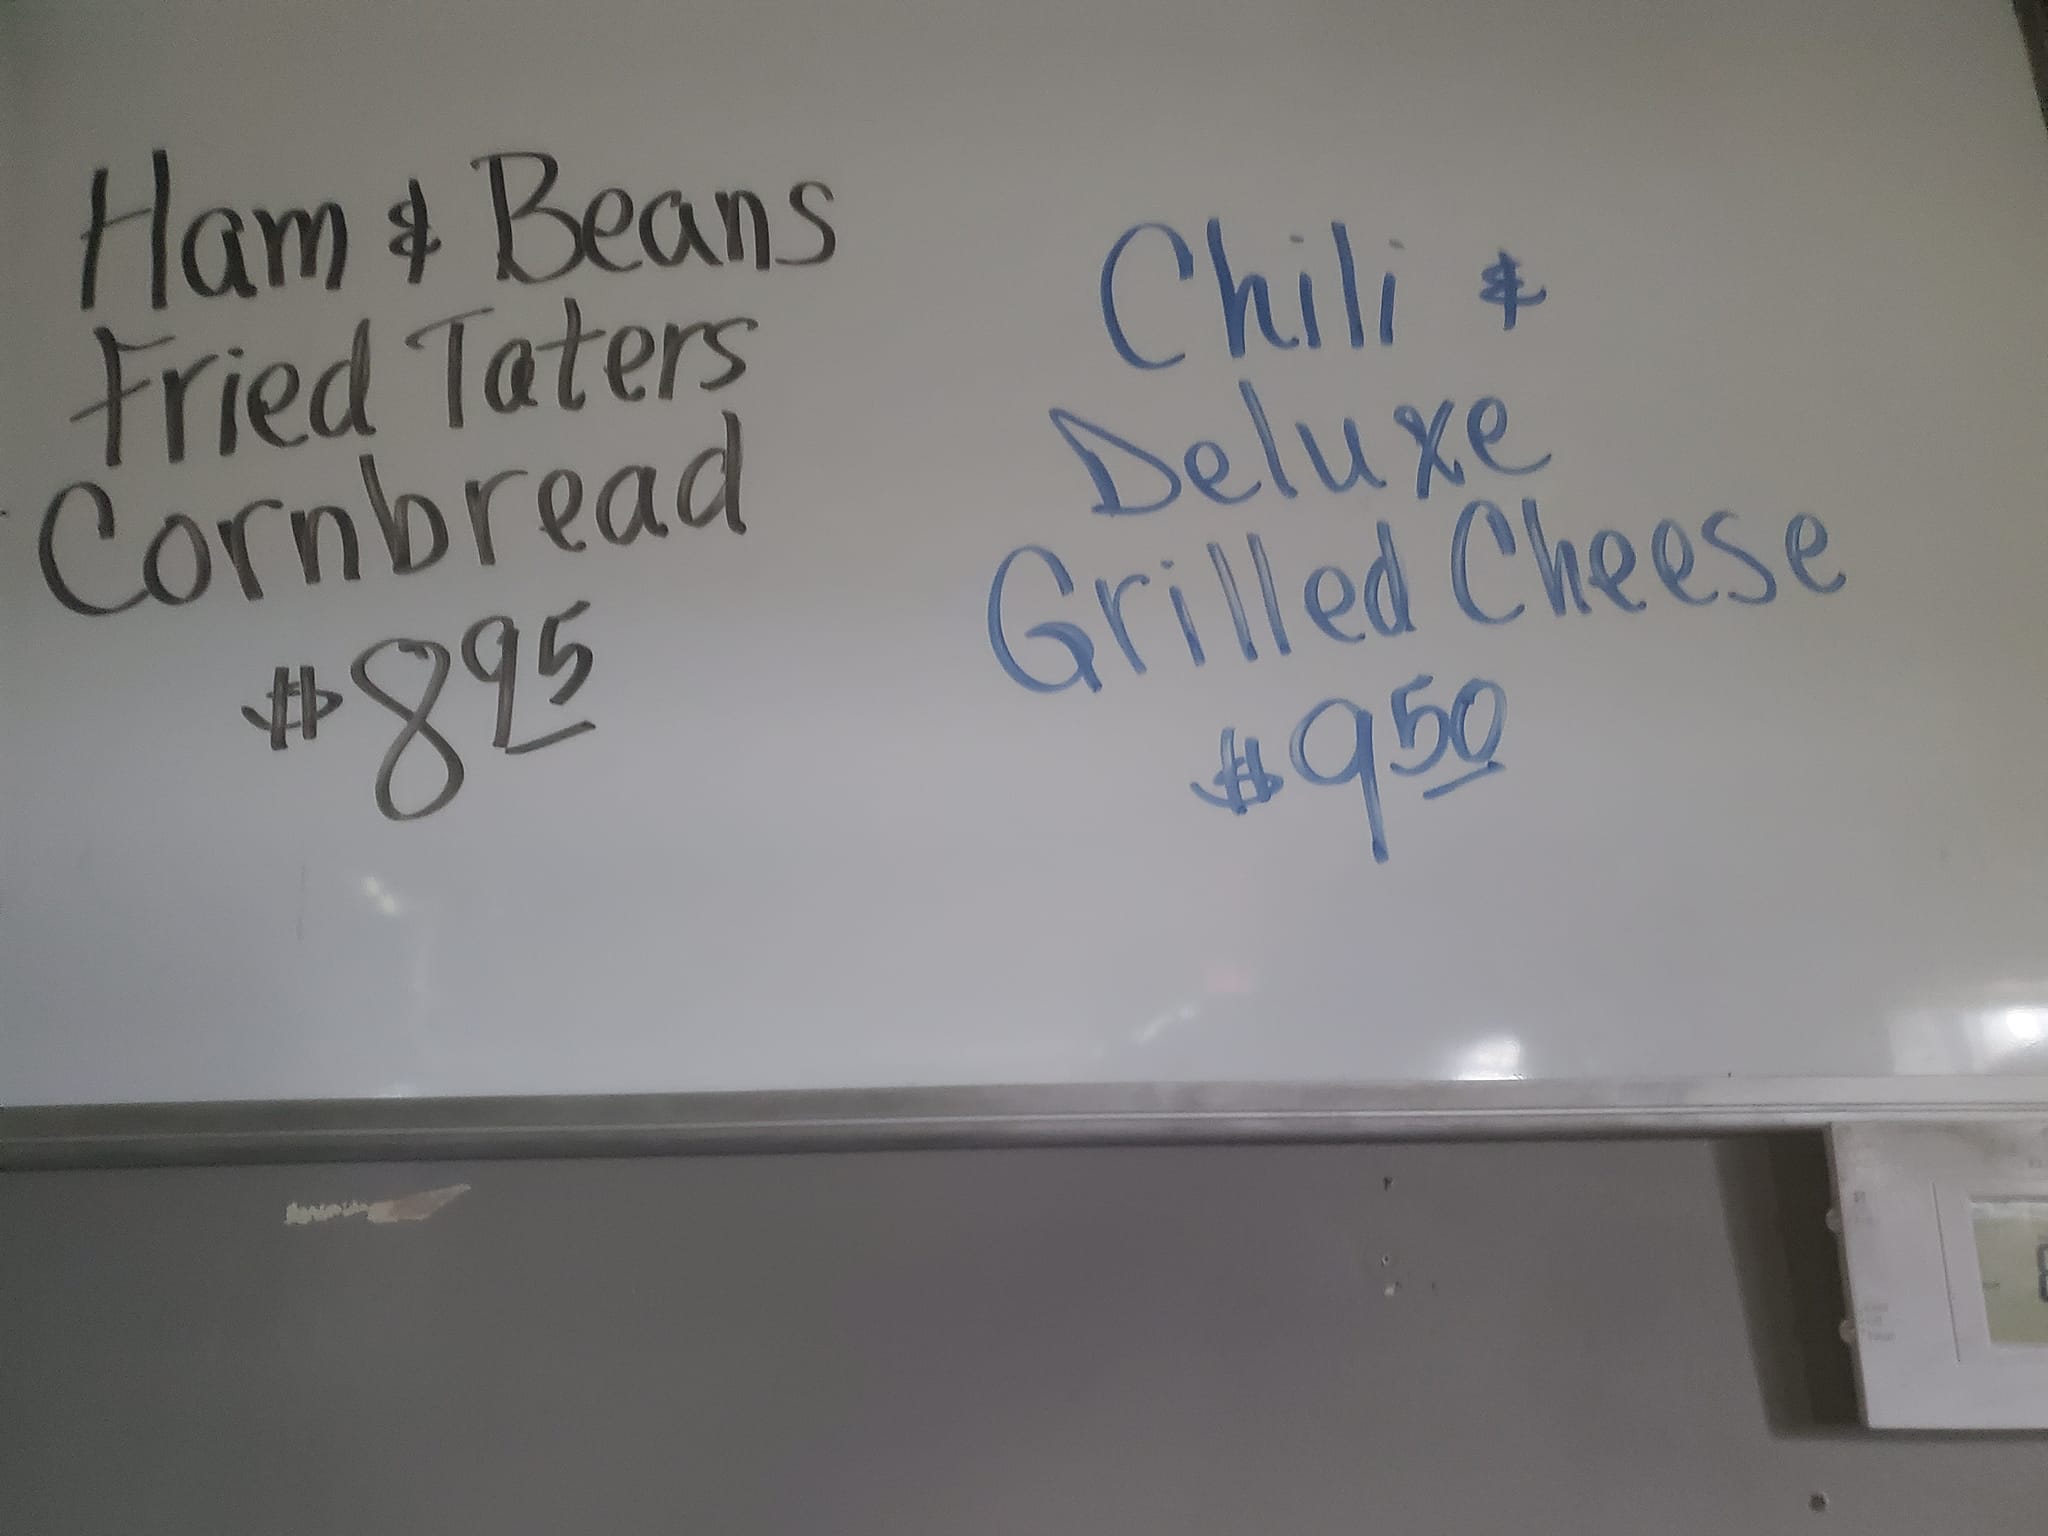 Ham & Beans
Fried Taters
Cornbread
$8 95
Chili &
Deluxe
Grilled Cheese
$9 50